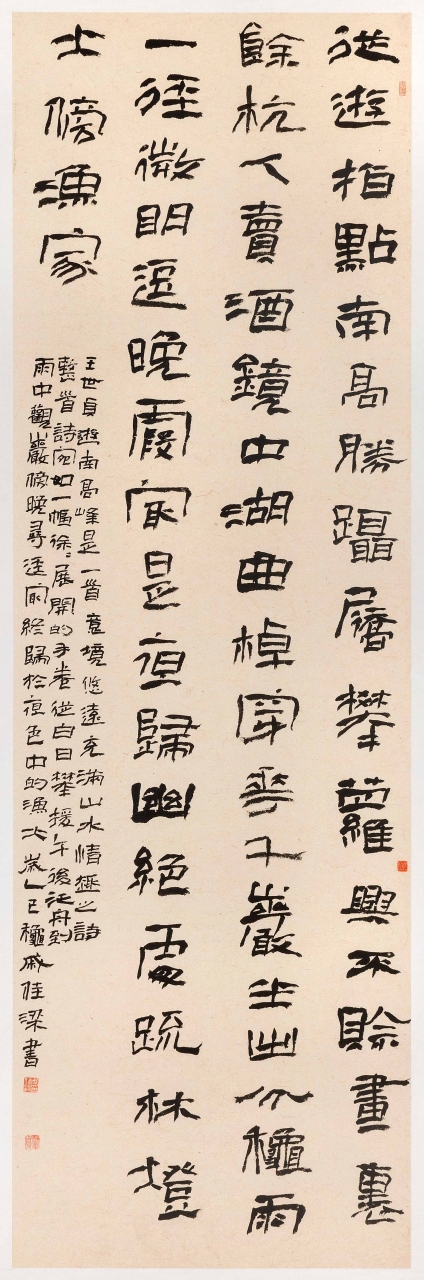 從遊指點南高勝躡屩攀蘿興不賒畫裏
餘杭人賣酒鏡中湖曲棹穿花千巖坐出分龝雨
一徑微明逗晚霞最是夜歸幽絕處疏林燈
火傍漁家
王世貞遊南高峰是一首意境悠遠充滿山水情趣之詩
整首詩宛如一幅徐徐展開的手卷從白日攀援午後泛舟到
雨中觀巖傍晚尋逕最終歸於夜色中的漁火歲乙巳龝戚佳梁書